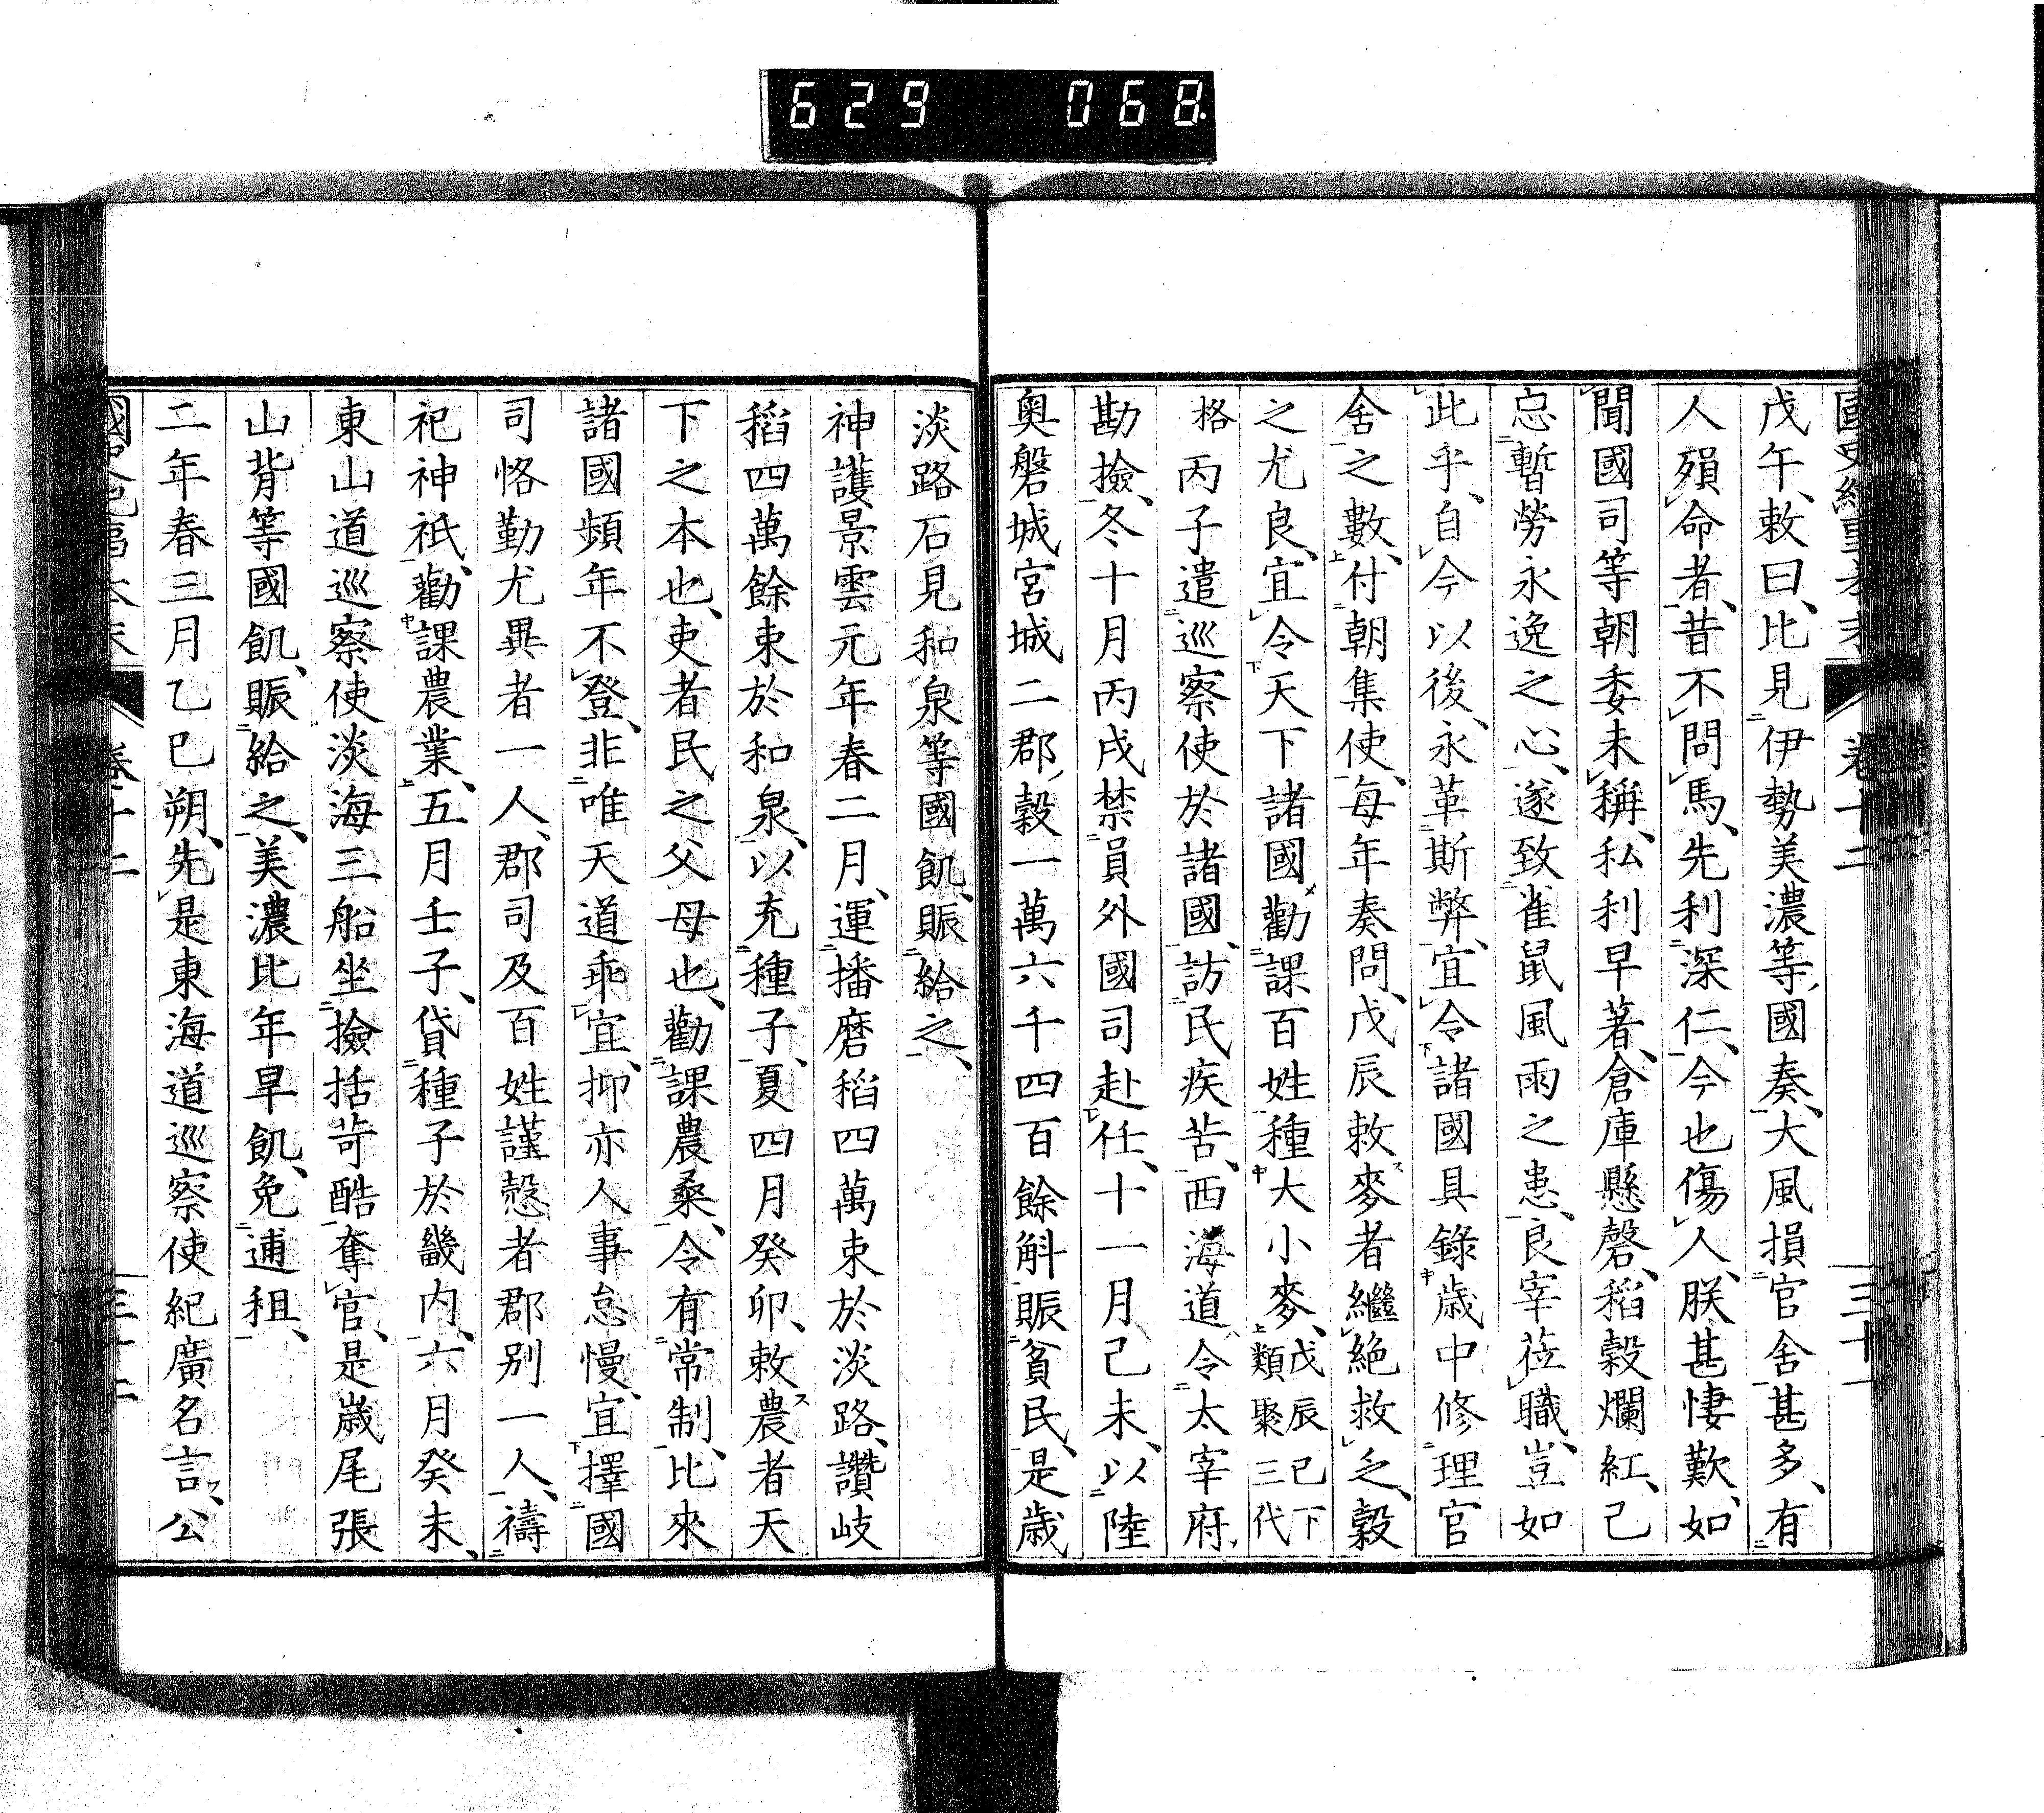 629 068
國史紀事本末 卷十二 三十一
戊午、敕曰、比見伊勢美濃等國奏、大風損官舍甚多、有
人殞命者、昔不問馬、先利深仁、今也傷人、朕甚悽歎、如
聞國司等朝委未稱、私利早著、倉庫懸磬、稻穀爛紅、已
忘暫勞永逸之心、遂致雀鼠風雨之患、良宰莅職、豈如
此乎、自今以後、永革斯弊、宜令諸國具錄歲中修理官
舍之數、付朝集使、每年奏問、戊辰敕麥者繼絕救乏、穀
之尤良、宜令天下諸國勸課百姓種大小麥、戊辰已下類聚三代
格丙子遣巡察使於諸國、訪民疾苦、西海道令太宰府
勘撿、冬十月丙戌禁員外國司赴任、十一月己未、以陸
奧磐城宮城二郡穀一萬六千四百餘斛賑貧民、是歲
淡路石見和泉等國飢、賑給之、
神護景雲元年春二月、運播磨稻四萬束於淡路、讚岐
稻四萬餘束於和泉、以充種子、夏四月癸卯、敕農者天
下之本也、吏者民之父母也、勸課農桑、令有常制、比來
諸國頻年不登、非唯天道乖宜、抑亦人事怠慢、宜擇國
司恪勤尤異者一人、郡司及百姓謹愨者郡別一人、禱
祀神祇、勸課農業、五月壬子、貸種子於畿內、六月癸未、
東山道巡察使淡海三船坐撿括苛酷奪官、是歲尾張
山背等國飢、賑給之、美濃比年旱飢、免逋租、
二年春三月乙巳朔、先是東海道巡察使紀廣名言、公
國史紀事本末 卷十二 三十二